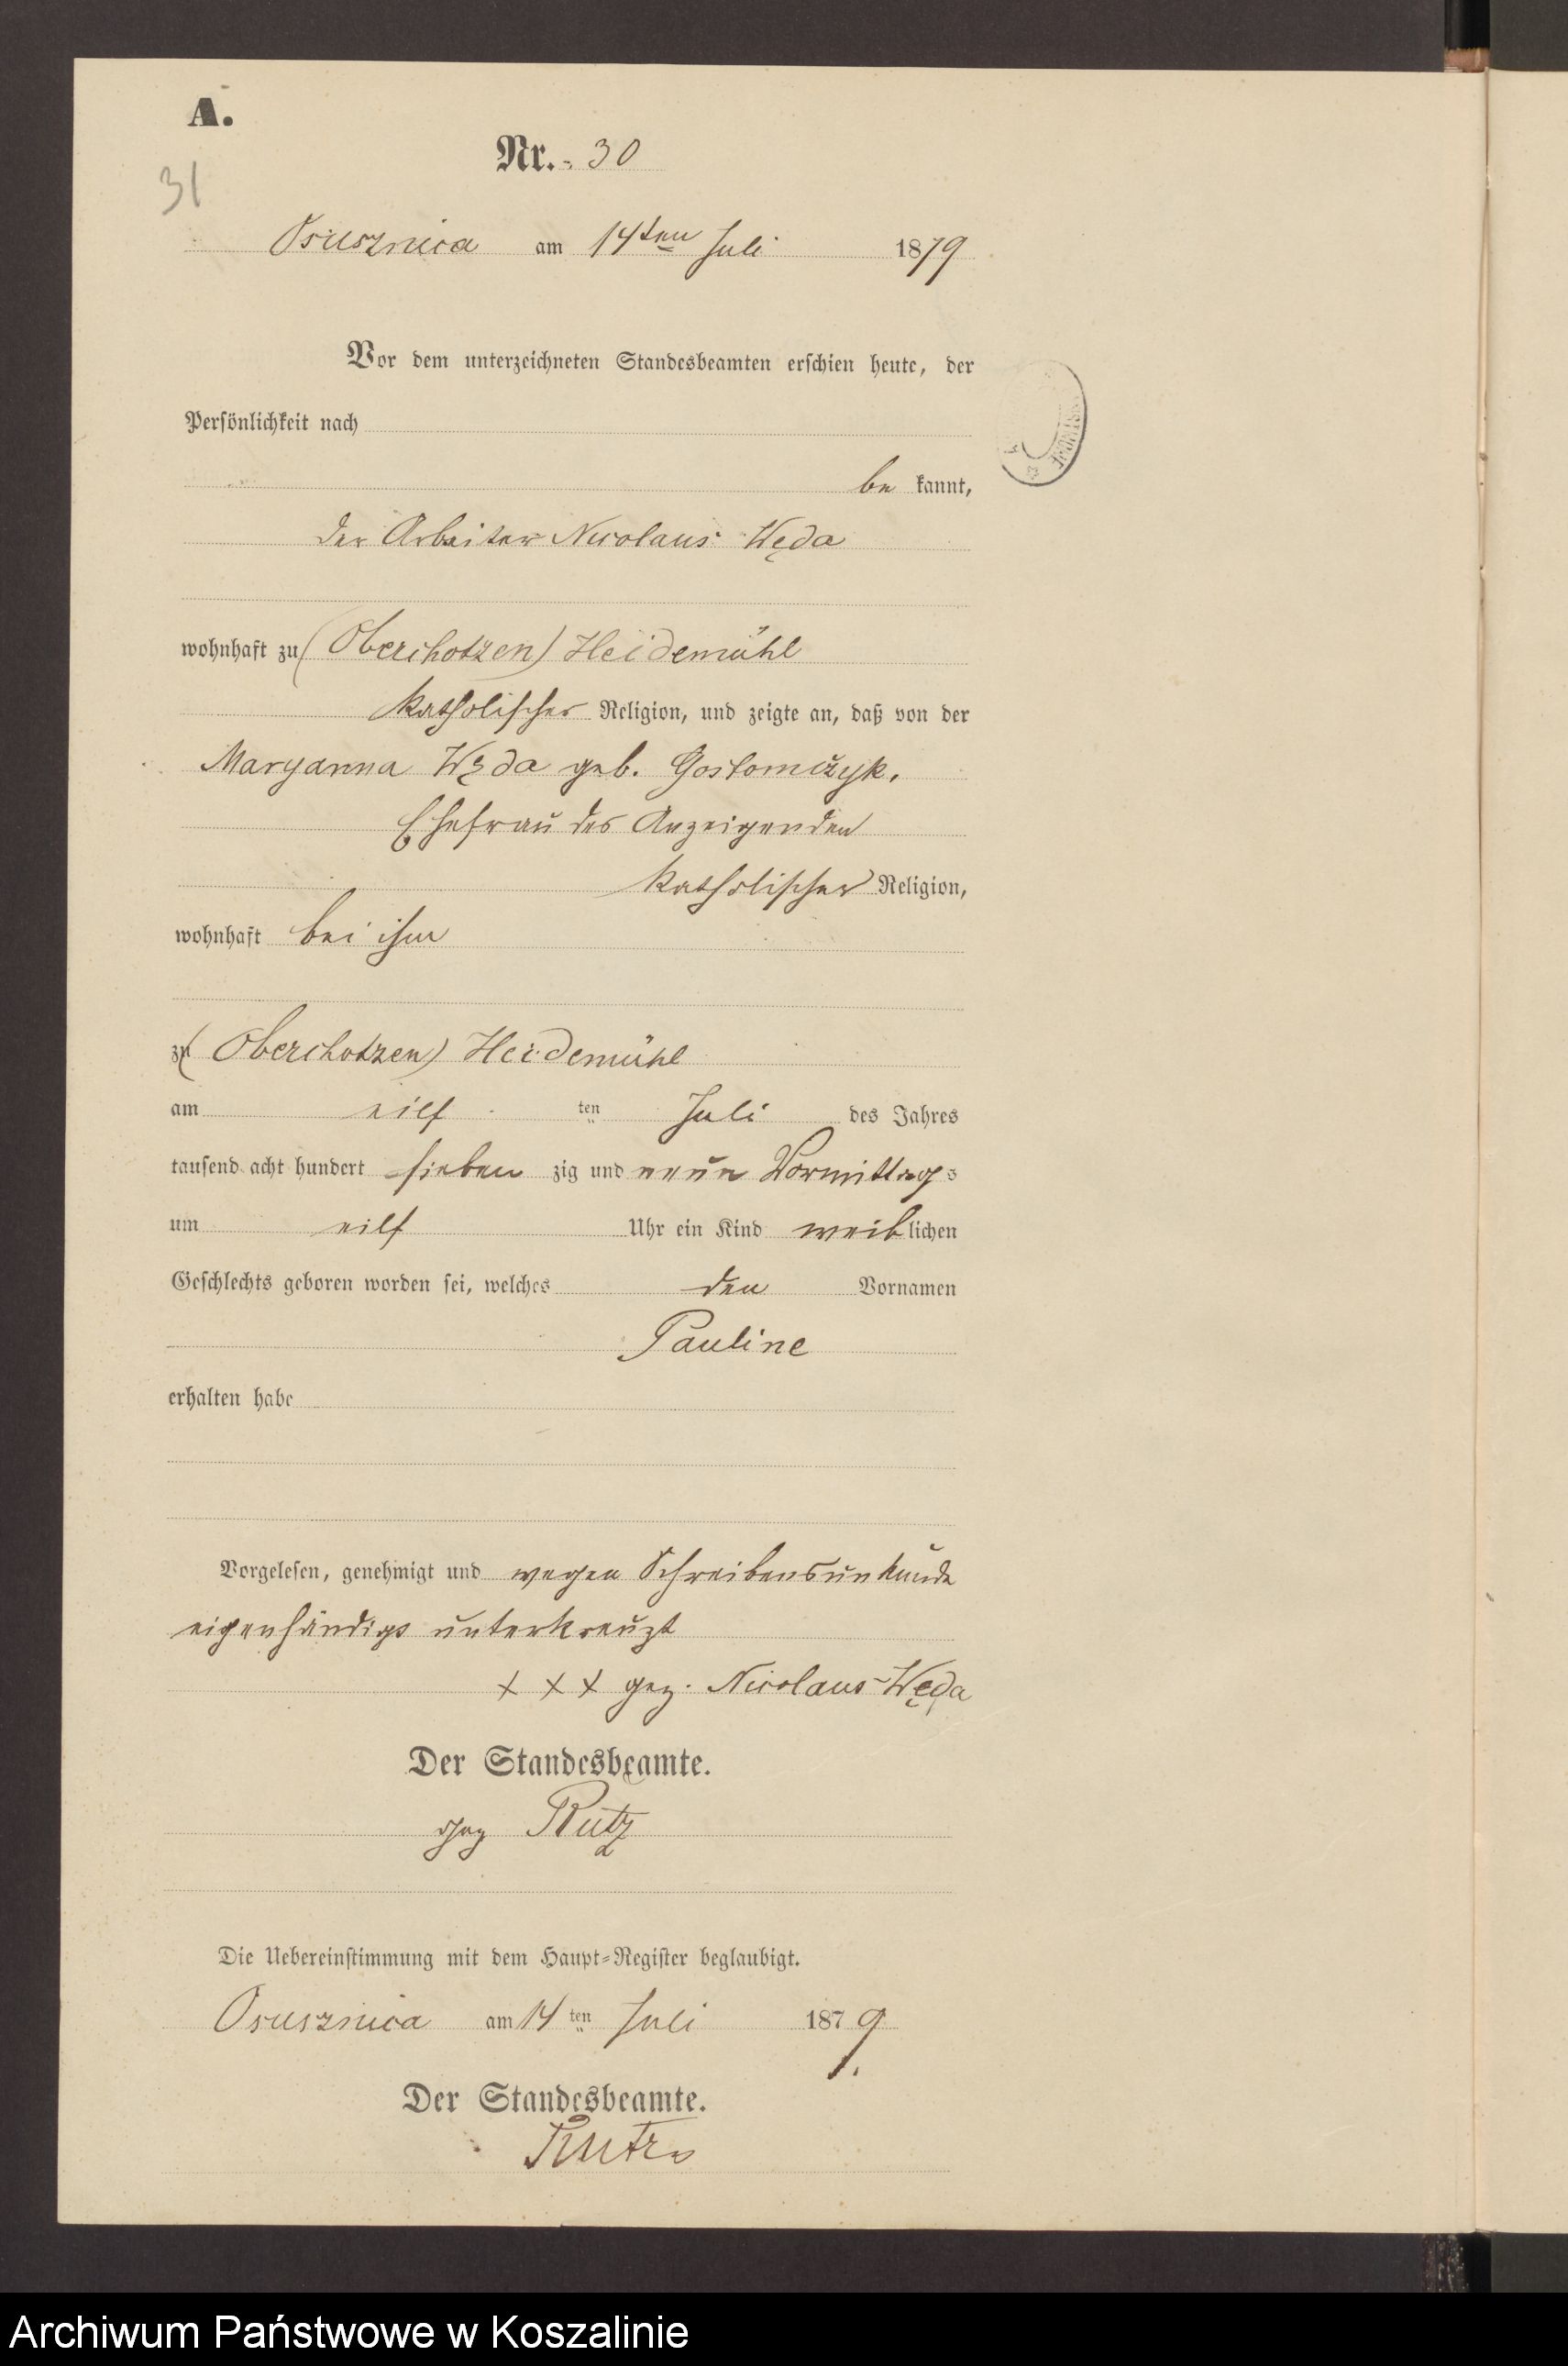 A.
Nr. 30
31
Osusznica am 14ten Juli 1879
Vor dem unterzeichneten Standesbeamten erschien heute, der
Persönlichkeit nach
be kannt,
der Arbeiter Nicolaus Węda
wohnhaft zu (Oberchotzen) Heidemühl
katholischer Religion, und zeigte an, daß von der
Maryanna Węda geb. Gostomczyk,
Ehefrau des Anzeigenden
katholischer Religion,
wohnhaft bei ihm
zu (Oberchotzen) Heidemühl
am eilf ten Juli des Jahres
tausend acht hundert sieben zig und neun Vormittags
um eilf Uhr ein Kind weiblichen
Geschlechts geboren worden sei, welches den Vornamen
Pauline
erhalten habe
Vorgelesen, genehmigt und wegen Schreibensunkunde
eigenhändigs unterkreuzt
x x x gez. Nicolaus Węda
Der Standesbeamte.
gez Rutz
Die Uebereinstimmung mit dem Haupt-Register beglaubigt.
Osusznica am 14 ten Juli 1879.
Der Standesbeamte.
Rutz
Archiwum Państwowe w Koszalinie